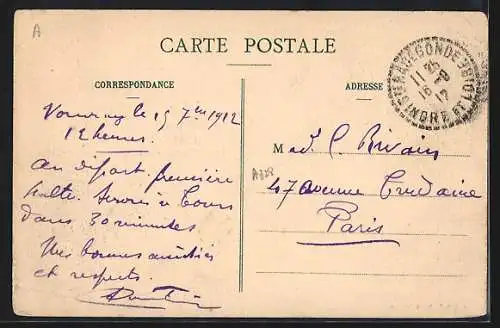 A
CARTE POSTALE
CORRESPONDANCE
ADRESSE
STE RADEGONDE
11 35
16 -9
12
INDRE ET LOIRE
Vouvray le 15 7bre 1912
12 heures.
au départ. première
halte. Serons à Tours
dans 30 minutes
Mes bonnes amitiés
et respects.
Mad. C. Brivain
47 avenue Trudaine
Paris